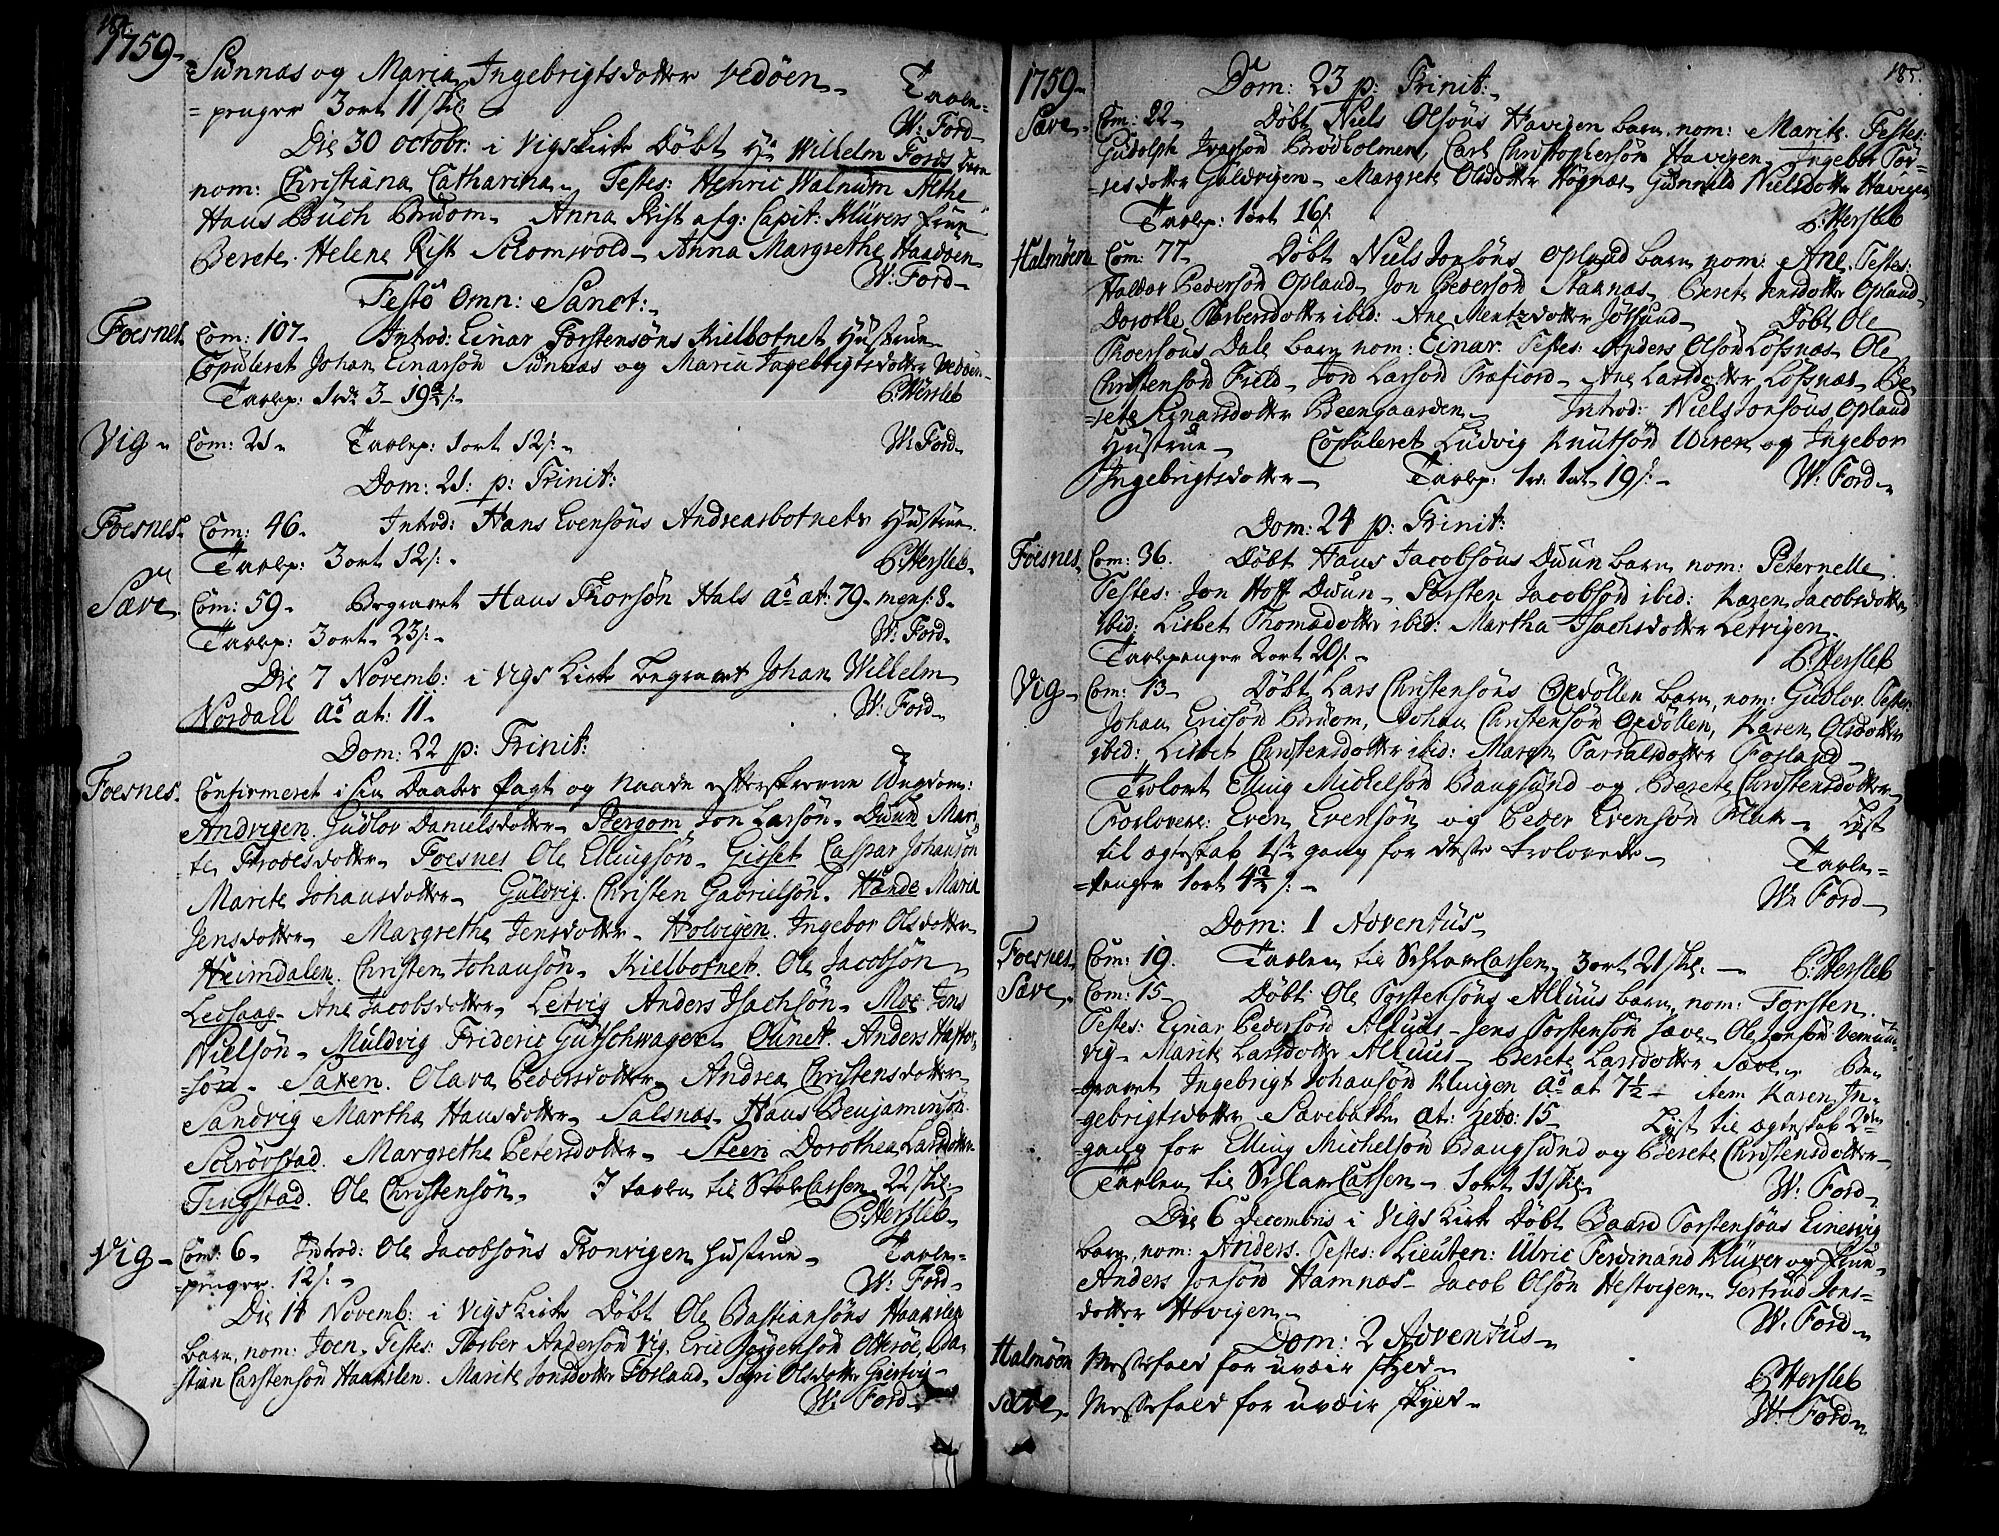 1759
Sünnas og Maria Ingebrigtsdotter Vedöen Tavle-
penger 3 ort 11 skl
W: Ford
Die 30 octobr: i Vigs Kirke Döbt Hr Wilhelm Fords barn
nom: Christiana Catharina Testes: Henric Walnum
Hans Büch Brudom Anna Rist afg: Capit: Klüvers Frue
Berete Helene Rist Anna Margrethe Haadoen
W: Ford
Festo Omn: Sanct:
Foesnes Com: 107 Introd: Einar Torstensöns Kielbotnet Hustrue
Copuleret Johan Einarsön Sünnas og Maria Ingebrigtsdotter Vedöen
Tavlep: 1 rd 3 19 C: Hersleb
Vig Com: 21 Tavlep: 1 ort 12 s: W: Ford
Dom: 21: p: Trinit:
Foesnes Com: 46 Introd: Hans Evensöns Andreasbotnets Hustrue
Tavlep: 3 ort 12 s: C: Hersleb
Sæve Com: 59 Begravet Hans Thorsön Hals ao æt: 79 mens: 8
Tavlep: 3 ort 23 s: W: Ford
Die 7 Novemb: i Vigs Kirke begravet Johan Wilhelm
Nordall ao æt: 11 W: Ford
Dom: 22 p: Trinit:
Foesnes Confirmeret i sin Daabes Pagt og Naade efterskrevne Ungdom:
Andvigen Gudlov Danielsdotter Bergom Jon Larsön Duun Mari-
te Frodesdotter Foesnes Ole Ellingsön Gisset Caspar Johansön
Marite Johansdotter Guldvig Christen Gabrielsön Hande Maria
Jensdotter Margrethe Jensdotter Holvigen Ingebor Olsdotter
Heimdalen Christen Johansön Kielbotnet Ole Jacobsön
Leosaag Ane Jacobsdotter Letvig Anders Isachsön Moe Jens
Nielsön Muldvig Frideric Gutschwager Ounet Anders
sön Saxen Olava Pedersdotter Andrea Christensdotter
Sandvig Martha Hansdotter Salsnas Hans Benjaminsön
Margrethe Petersdotter Steen Dorothea Larsdotter
Tingstad Ole Christensön I Tavlen til Skole Cassen 22 skl:
C: Hersleb
Vig Com: 6 Introd: Ole Jacobsöns Tronvigen Hustrue Tavle-
penger 12 s:
W: Ford
Die 14 Novemb: i Vigs Kirke Döbt Ole Bastiansöns Haanslen
barn, nom: Joen. Testes: Torber Andersön Vig, Eric Jörgensön Otteröe, Ba-
stian Carstensön Haanslen. Marite Jonsdotter Fosland, Sigri Olsdotter
W: Ford
185.
1759 Dom: 23 p: Trinit:
Sæve Com: 22 Döbt Niels Olsöns Havigen barn nom: Marite. Testes:
Gudolph Ivarsön Brodholmen, Carl Christophersön Havigen Ingebor Tor-
resdotter Guldvigen Margrete Olsdotter Högnæs Gunnild Nielsdotter Havigen
Tavlep: 1 ort 16 s: C: Hersleb
Halmöen Com: 77 Döbt Niels Jonsöns Opland barn nom: Ane. Testes:
Haldor Pedersön Opland Jon Pedersön Staanas Berete Jensdotter Opland
Dorothe Torbersdotter ibid: Ane Mentzdotter Jössund Döbt Ole
Thoersöns Dale barn nom: Einar. Testes: Anders Olsön Lofsnæs Ole
Christensön Field Jon Larsön Træfiord Ane Larsdotter Lofsnæs Be-
rete Einarsdotter Beengaarden Introd: Niels Jonsöns Opland
Hustrue Copuleret Ludvig Knutsön Uiren og Ingebor
Ingebrigtsdotter Tavlep: 1 rd 1 ort 19 s: W: Ford
Dom: 24 p: Trinit:
Foesnes Com: 36. Döbt Hans Jacobsöns Duun barn nom: Peternelle.
Testes: Jon Hoff Duun Torsten Jacobsön ibid: Karen Jacobsdotter
ibid: Lisbet Thomædotter ibid: Martha Isachsdotter Letvigen
Tavlepenger 2 ort 20 s: C: Hersleb
Vig Com: 13 Döbt Lars Christensöns Opdöllen barn, nom: Gudlov. Testes:
Johan Ericsön Brudom, Johan Christensön Opdöllen, Karen Olsdotter
ibid: Lisbet Christensdotter ibid: Maren Tarralsdotter Fosland
Trolovet Elling Michelsön Bangsund og Berete Christensdotter
Forlovere: Even Evensön og Peder Evensön Flak Lyst
til egteskab 1ste gang for disse trolovede Tavle-
penger 1 ort 4 s:
W: Ford
Dom: 1 Adventus
Foesnes Com: 19. Tavlen til Schole Cassen 3 ort 21 skl. C: Hersleb
Sæve Com: 15 Döbt Ole Torstensöns Alluus barn, nom: Torsten.
Testes: Einar Pedersön Alluus Jens Torstensön Sæve Ole Jonsön Vemun-
vig Marite Larsdotter Alluus Berete Larsdotter Sæve Be-
gravet Ingebrigt Johansön Kluigen ao æt 7½ item Karen In-
gebrigtsdotter Sævebakken æt: hebd: 15 Lyst til egteskab 2den
gang for Elling Michelsön Bangsund og Berete Christensdotter
Tavlen til Schole Cassen 1 ort 11 skl. W: Ford
Die 6 Decembris i Vigs Kirke Döbt Baard Torstensöns Einesvig
barn, nom: Anders. Testes: Lieuten: Ulric Ferdinand Klüver og Frue
Anders Jonsön Hamnæs Jacob Olsön Hestvigen Gertrud Jons-
dotter Hovigen
W: Ford
Dom: 2 Adventus
Halmöen Messefald for uveir skyld C: Hersleb
Sæve Messefald for uveir skyld W: Ford